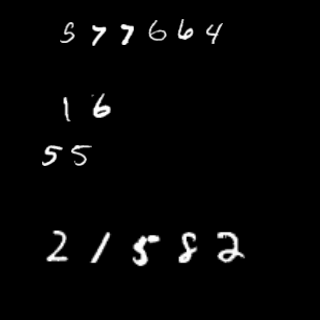 577664
16
55
21582